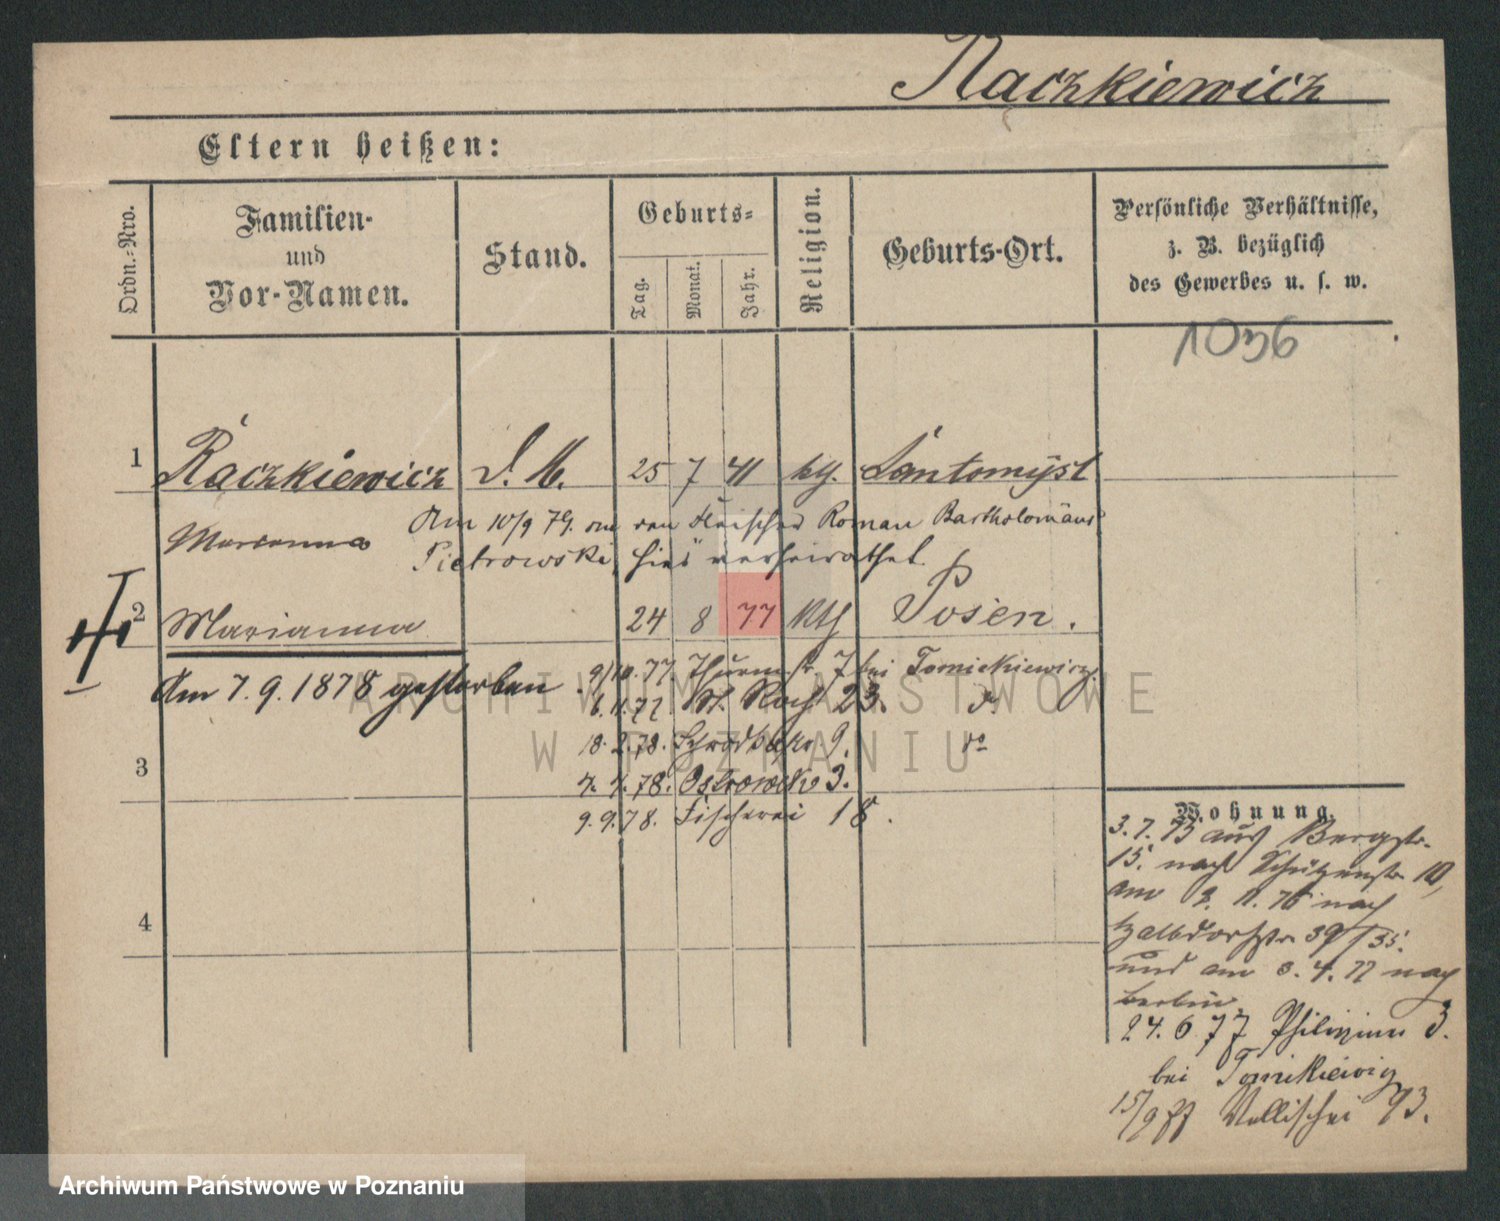 Raczkiewicz
Eltern heißen:
Ordn.-Nro.
Familien-
und
Vor-Namen.
Stand.
Geburts-
Tag.
Monat.
Jahr.
Religion.
Geburts-Ort.
Persönliche Verhältnisse,
z. B. bezüglich
des Gewerbes u. s. w.
1036
1 Raczkiewicz D. M. 25 7 41 kth. Santomysl
Marianna
Am 10/9 79. den Fleischer Roman Bartholomäus
Pietrowski, hier verheirathet.
2 Marianna 24 8 77 kth Posen.
Am 7. 9. 1878 gestorben
9/10.77. Thurmstr. 7 bei Tomickiewicz.
6.11.77. St. Roch 23. do
18.2.78. Schrodka 9. do
4.4.78. Ostrowek 3.
9.9.78. Fischerei 18.
3
4
Wohnung.
3.7.75 aus Bergstr.
15. nach Schützenstr 10,
am 3. 11. 76 nach
Halbdorfstr 39/35.
und am 3. 4. 77 nach
Berlin.
24.6 77 3.
bei Tomikiewicz
15/9 77 Wallischei 93.
ARCHIWUM PAŃSTWOWE
W POZNANIU
Archiwum Państwowe w Poznaniu